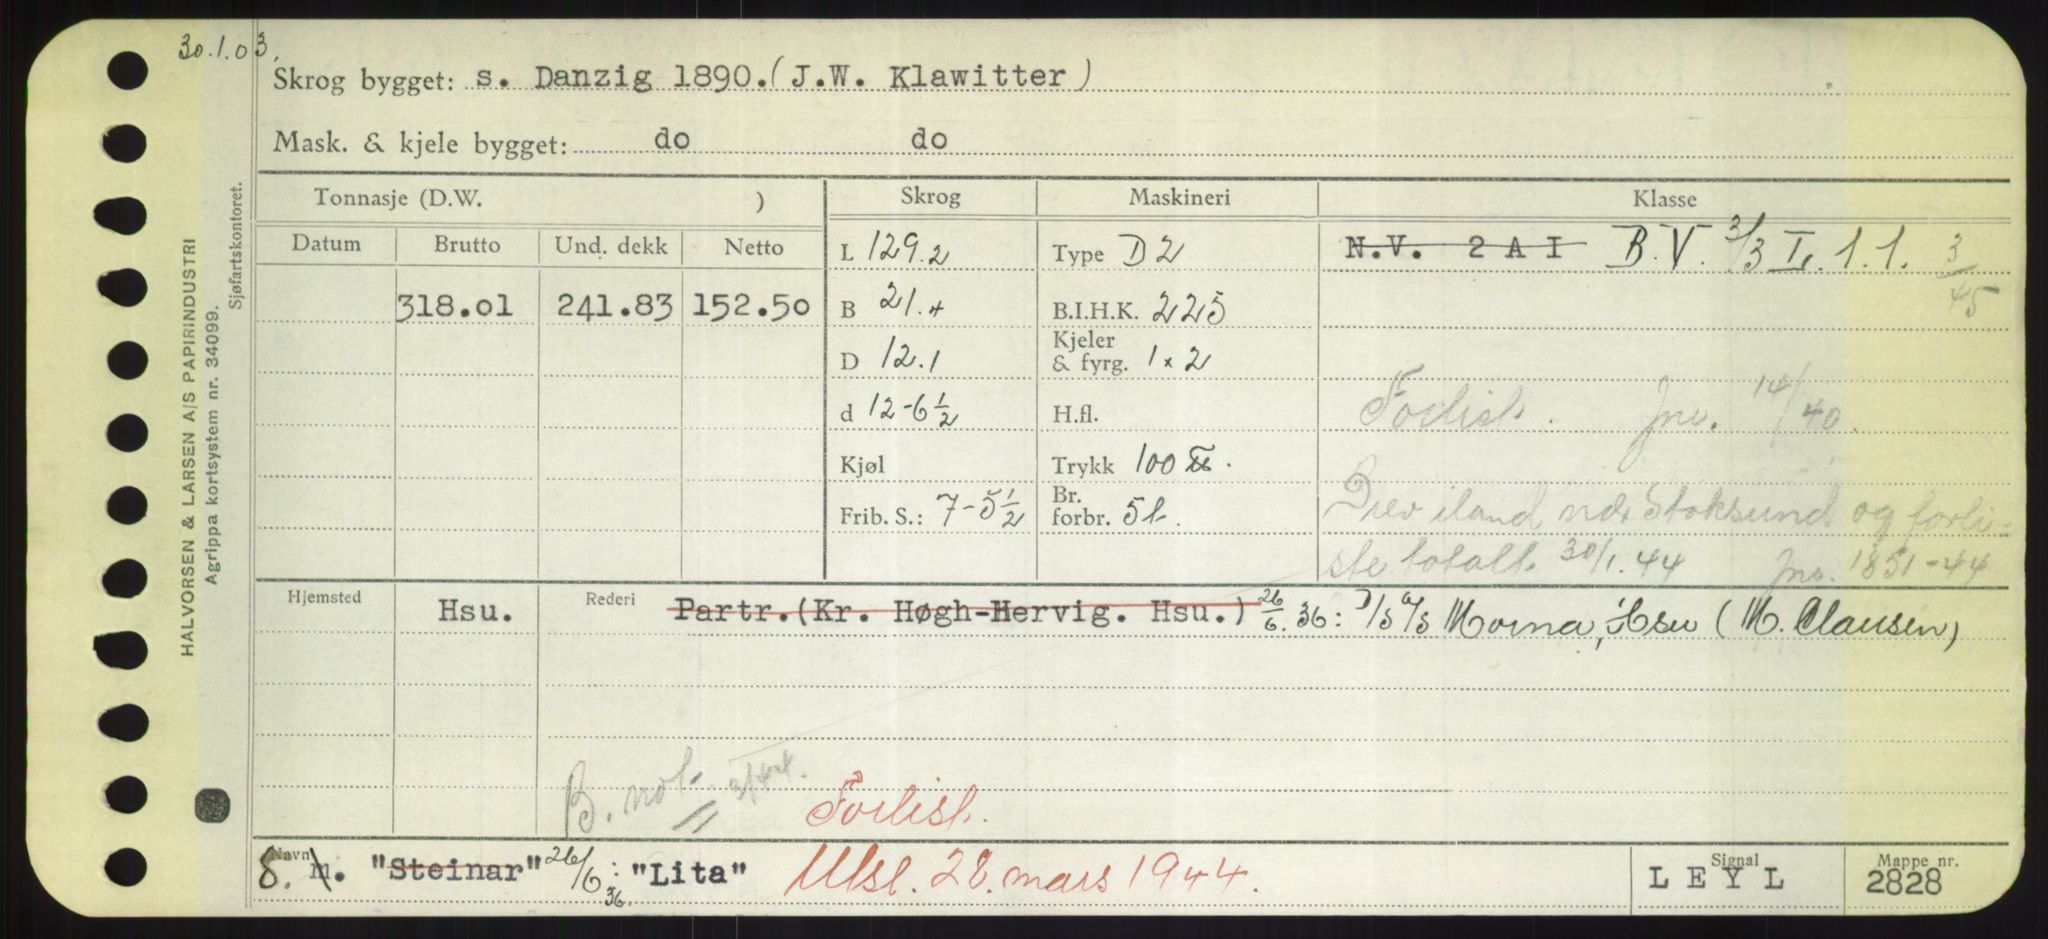 30.1.03.
Skrog bygget: s. Danzig 1890. (J.W. Klawitter)
Mask. & kjele bygget: do do
Tonnasje (D.W. ) Skrog Maskineri Klasse
Datum Brutto Und. dekk Netto L 129.2 Type D2 N.V. 2 A I B.V. 3/3 I. 1.1. 3/45
318.01 241.83 152.50 B 21.4 B.I.H.K. 225
D 12.1 Kjeler & fyrg. 1x2
d 12-6½ H.fl. Forlist. Jno. 14/40.
Kjøl Trykk 100
Frib. S.: 7-5½ Br. forbr. 5t. Drev iland nær Stoksund og forli-
ste totalt. 30/1.44 Jno. 1851-44
Hjemsted Hsu. Rederi Partr. (Kr. Høgh-Hervig. Hsu.) 26/6.36: D/S A/S Morna, Hsu (M. Clausen)
B. not. 3/44. Forlist.
Navn 8. M. "Steinar" 26/6 36: "Lita" Utsl. 28. mars 1944. Signal LEYL Mappe nr. 2828
HALVORSEN & LARSEN A/S PAPIRINDUSTRI
Agrippa kortsystem nr. 34099.
Sjøfartskontoret.